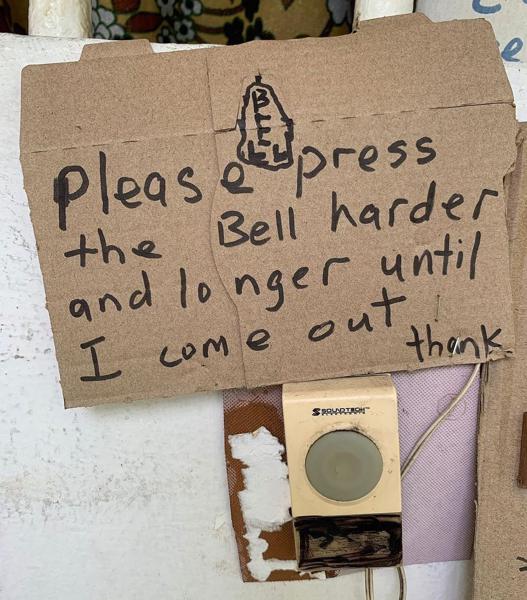 BELL
Please press
the Bell harder
and longer until
I come out
thank
SOUNDTECH™